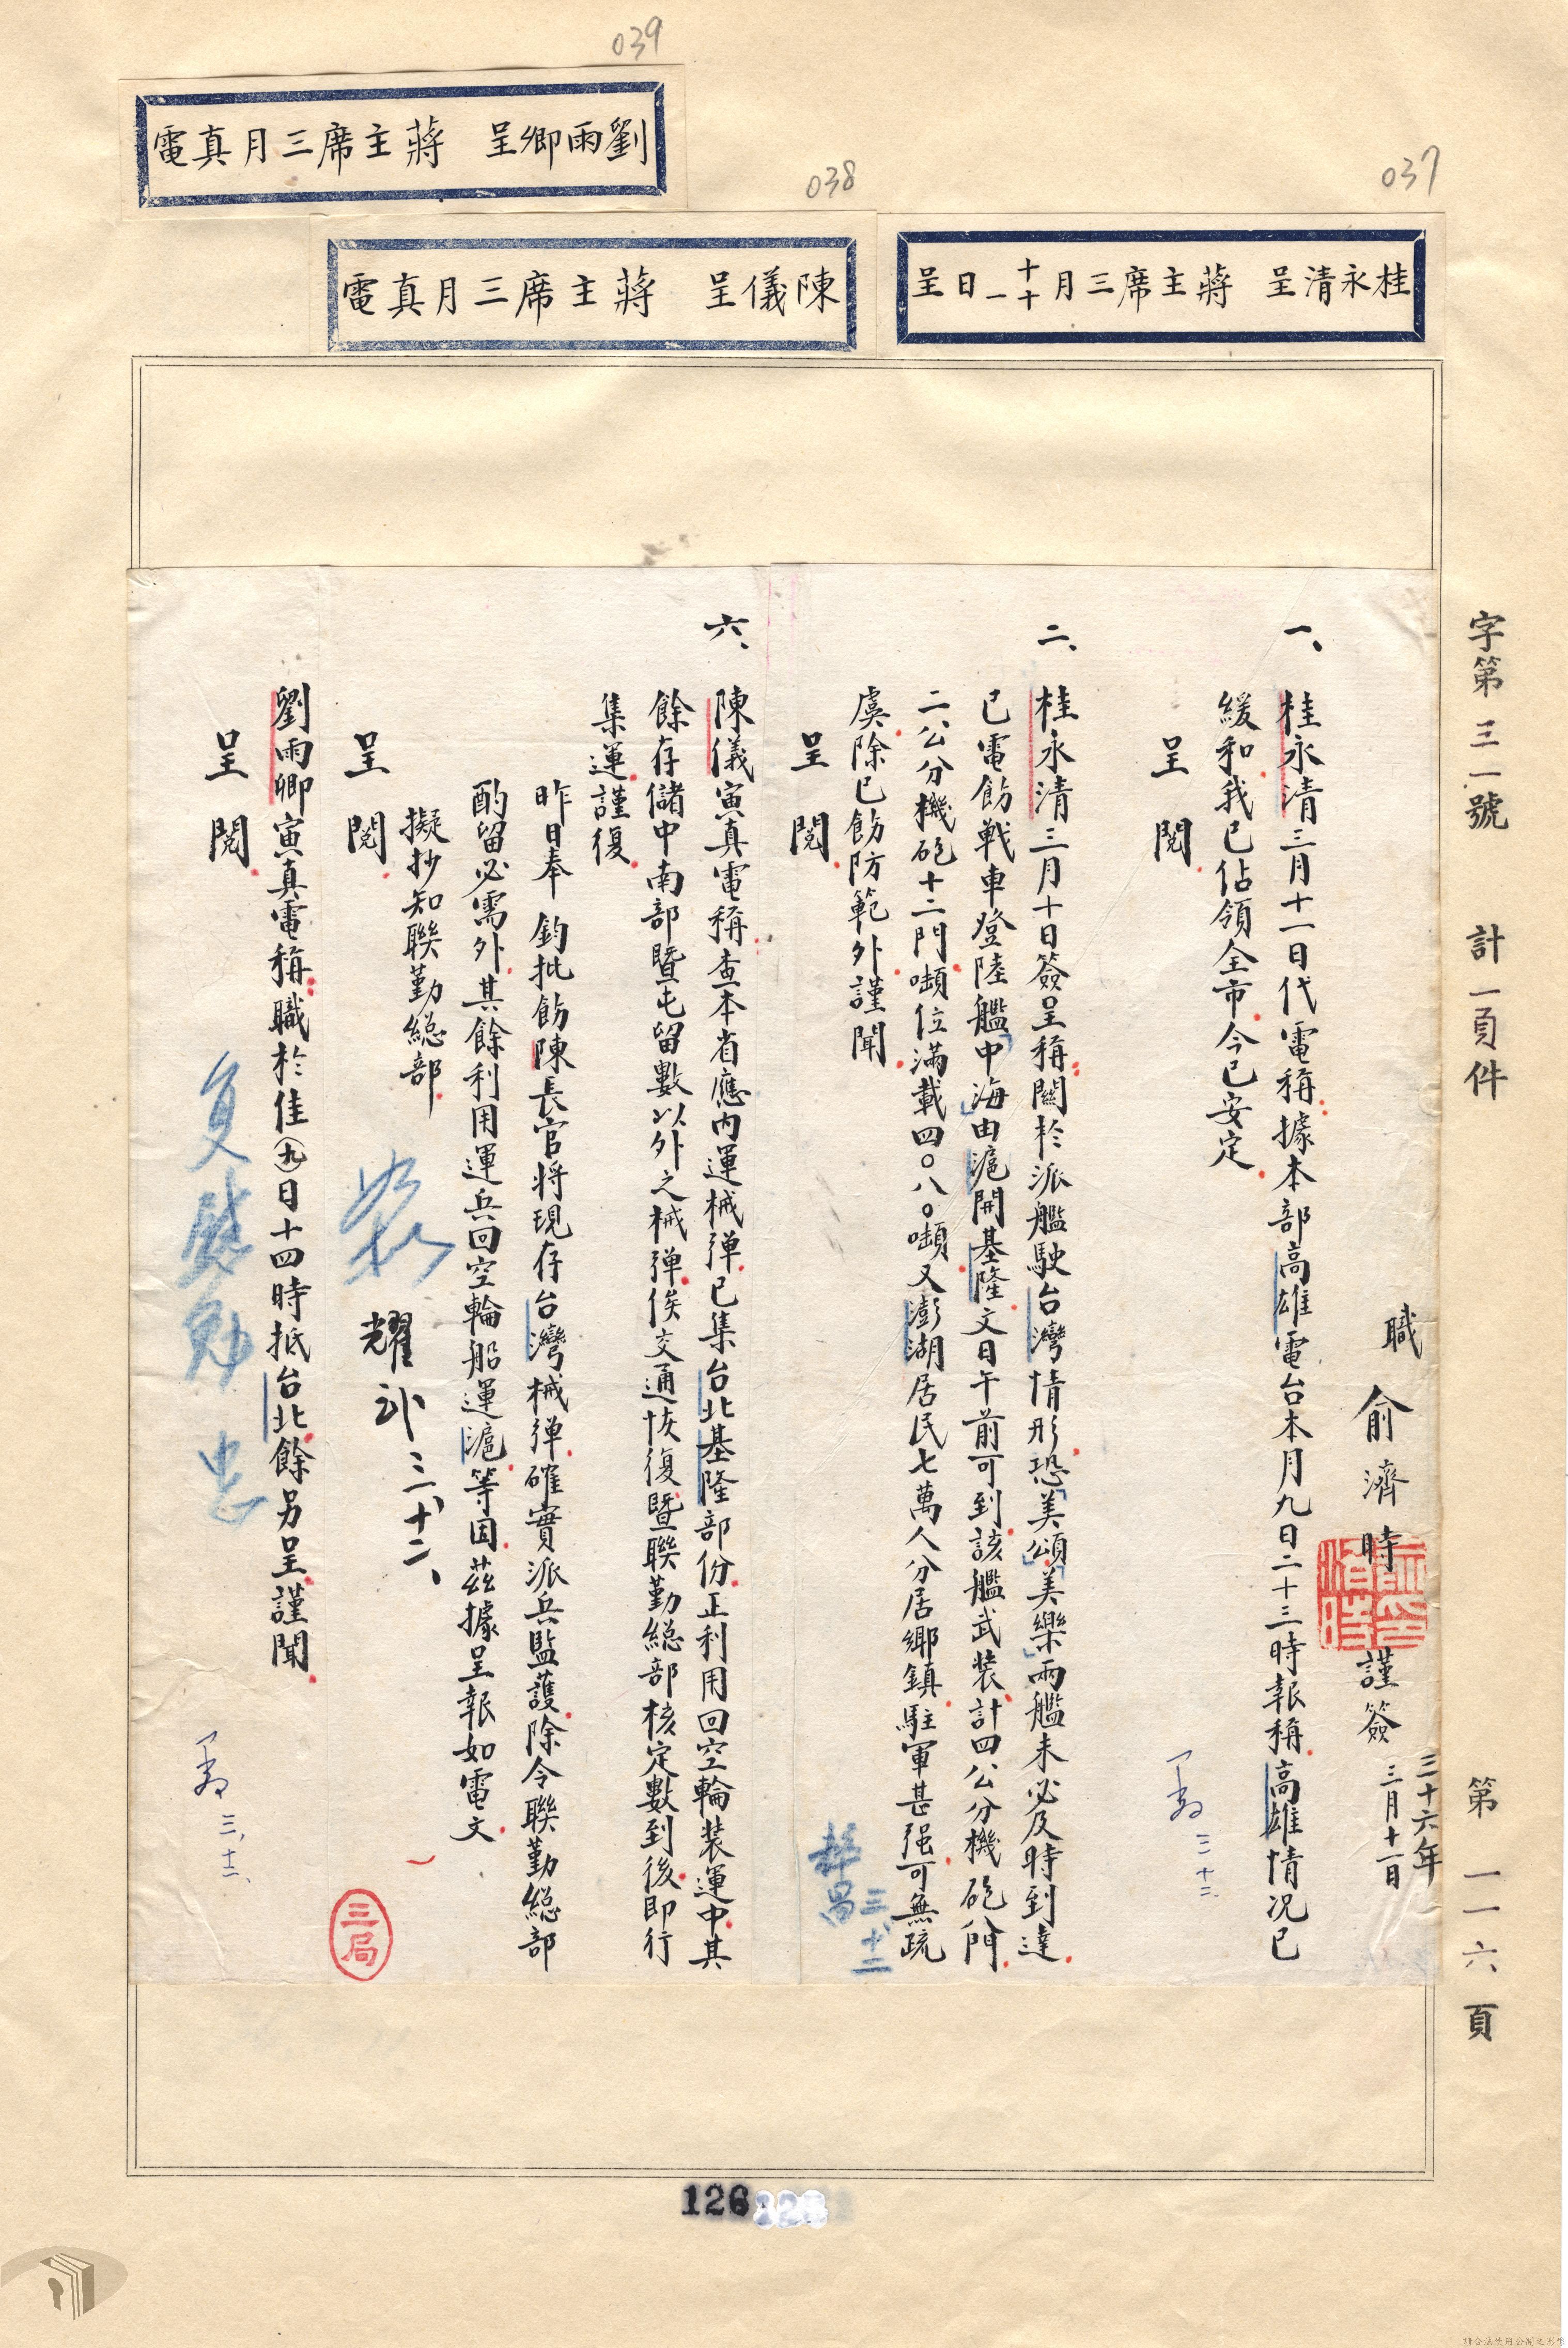 039
劉雨卿呈　蔣主席三月真電
038
陳儀呈　蔣主席三月真電
037
桂永清呈　蔣主席三月十十一日呈
字第三一號　計一頁件　第一一六頁
職　俞濟時　謹簽　三十六年三月十一日
一、桂永清三月十一日代電稱據本部高雄電台本月九日二十三時報稱高雄情況已
緩和我已佔領全市今已安定
呈閱
三、十二、
二、桂永清三月十日簽呈稱關於派艦駛台灣情形恐「美頌」「美樂」兩艦未必及時到達
已電飭戰車登陸艦「中海」由滬開基隆文日午前可到該艦武裝計四公分機砲八門
二公分機砲十二門噸位滿載四〇八〇噸又澎湖居民七萬人分居鄉鎮駐軍甚强可無疏
虞除已飭防範外謹聞
呈閱
三、十二
六、陳儀寅真電稱查本省應內運械彈已集台北基隆部份正利用回空輪裝運中其
餘存儲中南部暨屯留數以外之械彈俟交通恢復暨聯勤總部核定數到後即行
集運謹復
昨日奉　鈞批飭陳長官將現存台灣械彈確實派兵監護除令聯勤總部
酌留必需外其餘利用運兵回空輪船運滬等因茲據呈報如電文
擬抄知聯勤總部
呈閱
如擬
三、十二、
三局
劉雨卿寅真電稱職於佳㊈日十四時抵台北餘另呈謹聞
呈閱
復慰勉
三、十二、
126